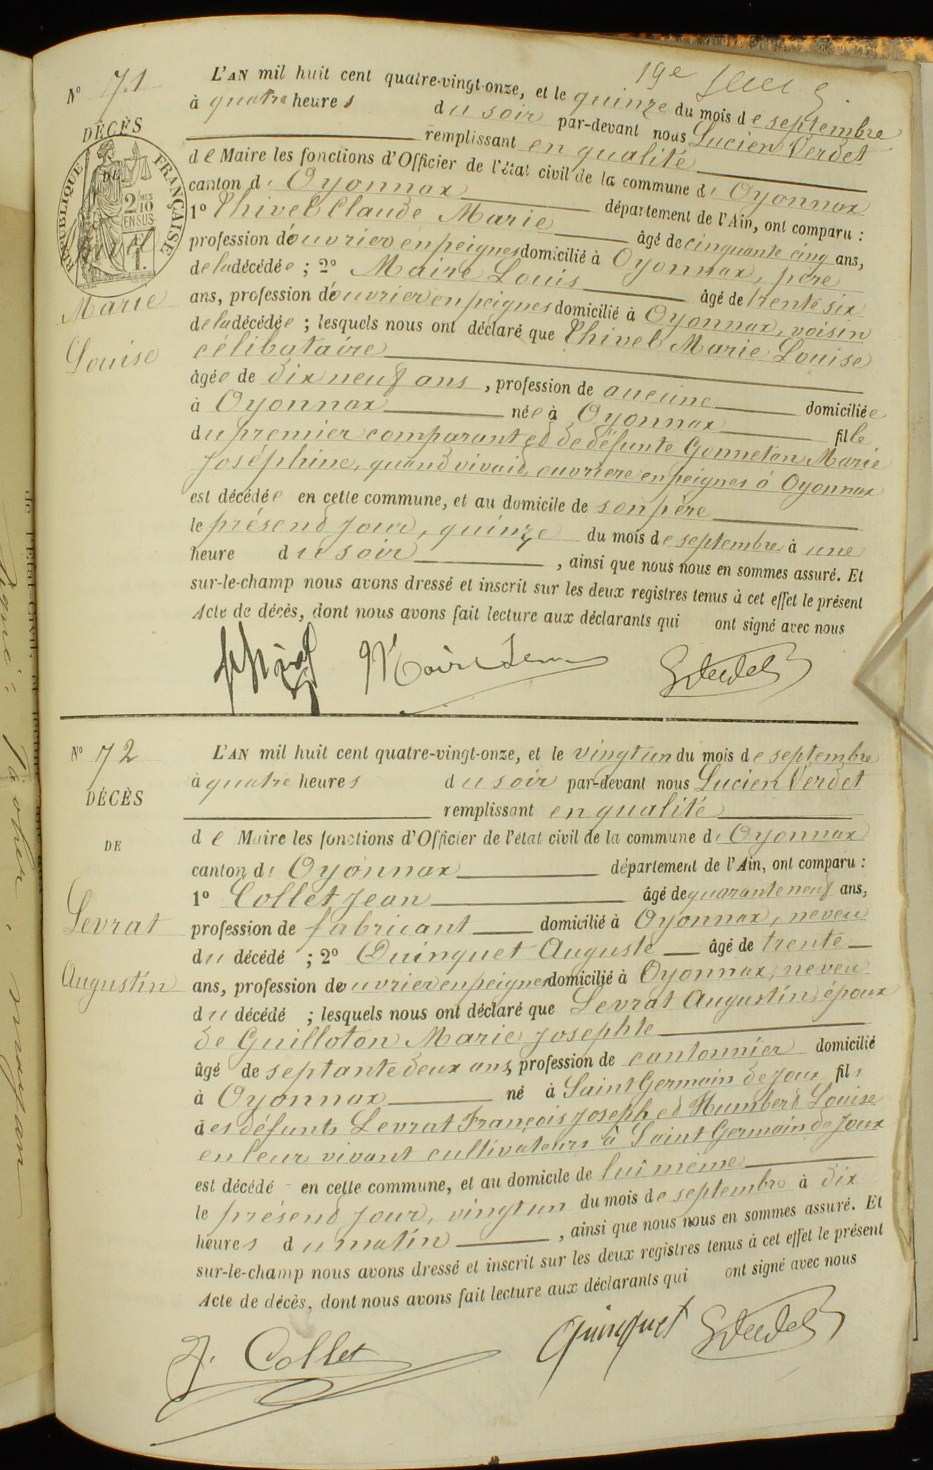 19e
N° 71
DÉCÈS
DE
RÉPUBLIQUE FRANÇAISE
2 10mes EN SUS
Marie
Louise
L'AN mil huit cent quatre-vingt-onze, et le quinze du mois de septembre
à quatre heures du soir par-devant nous Lucien Verdet
remplissant en qualité
de Maire les fonctions d'Officier de l'état civil de la commune d' Oyonnax
canton d' Oyonnax département de l'Ain, ont comparu :
1° Thivel Claude Marie âgé de cinquante cinq ans,
profession d'ouvrier en peignes domicilié à Oyonnax, père
de la décédée ; 2° Maire Louis âgé de trente six
ans, profession d'ouvrier en peignes domicilié à Oyonnax, voisin
de la décédée ; lesquels nous ont déclaré que Thivel Marie Louise
célibataire
âgée de dix neuf ans, profession de aucune domiciliée
à Oyonnax née à Oyonnax fille
du premier comparant et de défunte Gonneton Marie
Joséphine, quand vivait, ouvrière en peignes à Oyonnax
est décédée en cette commune, et au domicile de son père
le présent jour, quinze du mois de septembre à une
heure du soir, ainsi que nous nous en sommes assuré. Et
sur-le-champ nous avons dressé et inscrit sur les deux registres tenus à cet effet le présent
Acte de décès, dont nous avons fait lecture aux déclarants qui ont signé avec nous
Thivel Maire Louis LVerdet
N° 72
DÉCÈS
DE
Levrat
Augustin
L'AN mil huit cent quatre-vingt-onze, et le vingt un du mois de septembre
à quatre heures du soir par-devant nous Lucien Verdet
remplissant en qualité
de Maire les fonctions d'Officier de l'état civil de la commune d' Oyonnax
canton d' Oyonnax département de l'Ain, ont comparu :
1° Collet Jean âgé de quarante neuf ans,
profession de fabricant domicilié à Oyonnax, neveu
du décédé ; 2° Quinquet Auguste âgé de trente
ans, profession de ouvrier en peignes domicilié à Oyonnax, neveu
du décédé ; lesquels nous ont déclaré que Levrat Augustin, époux
de Guilloton Marie Josephte
âgé de septante deux ans, profession de cantonnier domicilié
à Oyonnax né à Saint Germain de Joux, fils
des défunts Levrat François Joseph et Humbert Louise
en leur vivant cultivateurs à Saint Germain de Joux
est décédé en cette commune, et au domicile de lui même
le présent jour, vingt un du mois de septembre à dix
heures du matin, ainsi que nous nous en sommes assuré. Et
sur-le-champ nous avons dressé et inscrit sur les deux registres tenus à cet effet le présent
Acte de décès, dont nous avons fait lecture aux déclarants qui ont signé avec nous
J. Collet Quinquet LVerdet